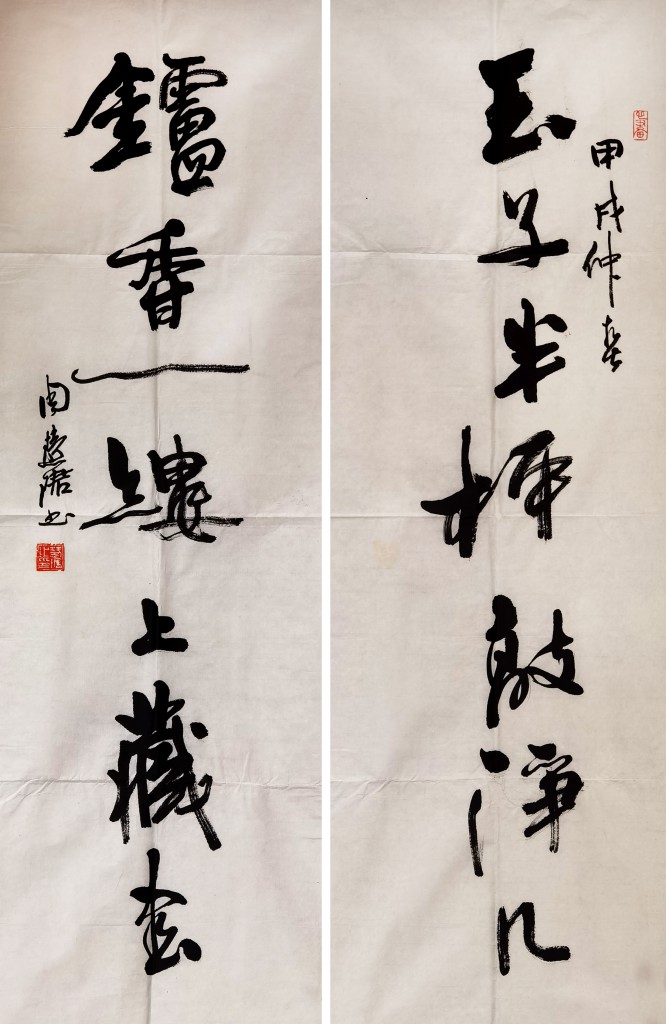 甲戌仲春
玉子半枰敲淨几
鑪香一縷上藏書
周慧珺书